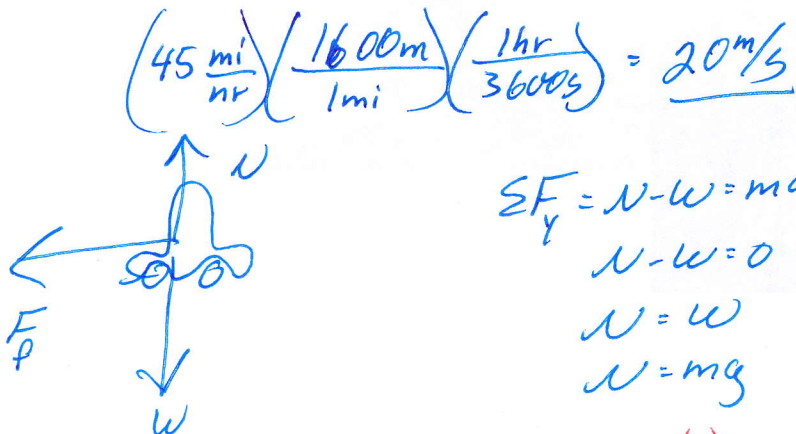 (45 mi/hr)(1600m/1mi)(1hr/3600s) = 20 m/s
N
ΣF_y = N-W = m
N-W = 0
F_f
N = W
N = mg
W